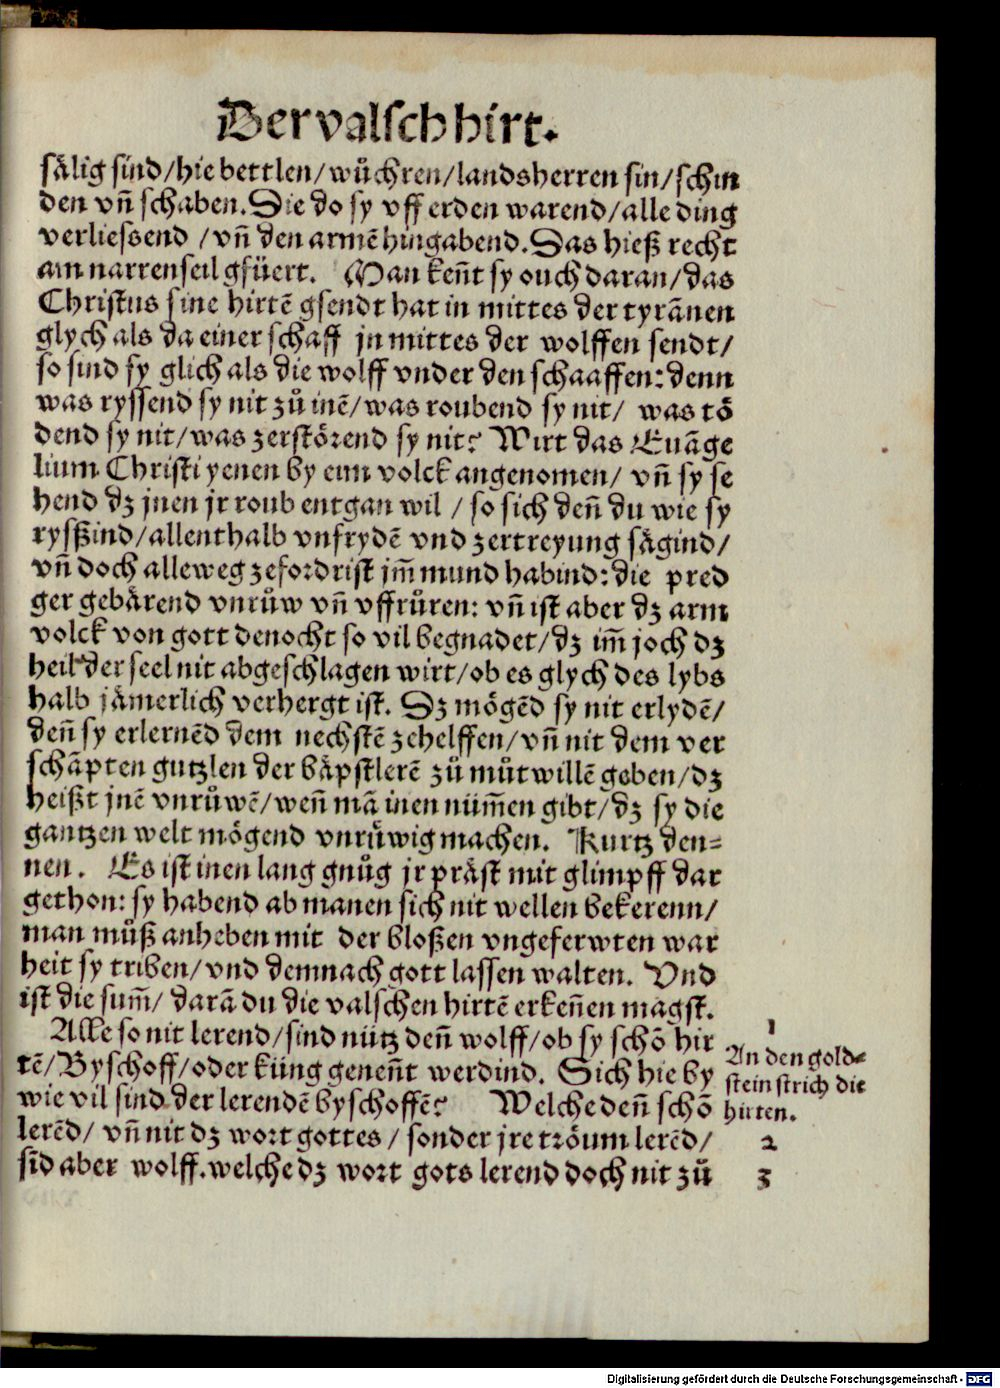 Der valsch hirt.
sälig sind/hie bettlen/wůchren/landsherren sin/schin
den vn̄ schaben. Die do sy vff erden warend/alle ding
verliessend /vn̄ den armē hingabend. Das hieß recht
am narrenseil gfüert. Man keñt sy ouch daran/das
Christus sine hirtē gsendt hat in mittes der tyrānen
glych als da einer schaff jn mittes der wolffen sendt/
so sind sy glich als die wolff vnder den schaaffen: denn
was ryssend sy nit zů inē/was roubend sy nit/ was tö
dend sy nit/was zerstörend sy nit? Wirt das Euāge
lium Christi yenen by eim volck angenomen/ vn̄ sy se
hend dz jnen jr roub entgan wil / so sich deñ du wie sy
ryssßind/allenthalb vnfrydē vnd zertreyung sägind/
vn̄ doch alleweg zefordrist jm̄ mund habind: die pred
ger gebärend vnrůw vn̄ vffrůren: vn̄ ist aber dz arm
volck von gott denocht so vil begnadet/dz im̄ joch dz
heil der seel nit abgeschlagen wirt/ob es glych des lybs
halb jämerlich verhergt ist. Dz mögēd sy nit erlydē/
deñ sy erlernēd dem nechstē zehelffen/vn̄ nit dem ver
schāpten gutzlen der bäpstlerē zů můtwillē geben/dz
heißt jnē vnrůwē/weñ mā inen nüm̄en gibt/dz sy die
gantzen welt mögend vnrůwig machen. Kurtz den⸗
nen. Es ist inen lang gnůg jr präst mit glimpff dar
gethon: sy habend ab manen sich nit wellen bekerenn/
man můß anheben mit der bloßen vngeferwten war
heit sy triben/vnd demnach gott lassen walten. Vnd
ist die sum̄/ darā du die valschen hirtē erkeñen magst.
Alle so nit lerend/sind nütz deñ wolff/ob sy schō hir
tē/Byschoff/oder küng geneñt werdind. Sich hie by
wie vil sind der lerendē byschoffē? Welche deñ schō
lerēd/ vn̄ nit dz wort gottes / sonder jre tröum lerēd/
sīd aber wolff. welche dz wort gots lerend doch nit zů
1
An den gold⸗
stein strich die
hirten.
2
3
Digitalisierung gefördert durch die Deutsche Forschungsgemeinschaft - DFG